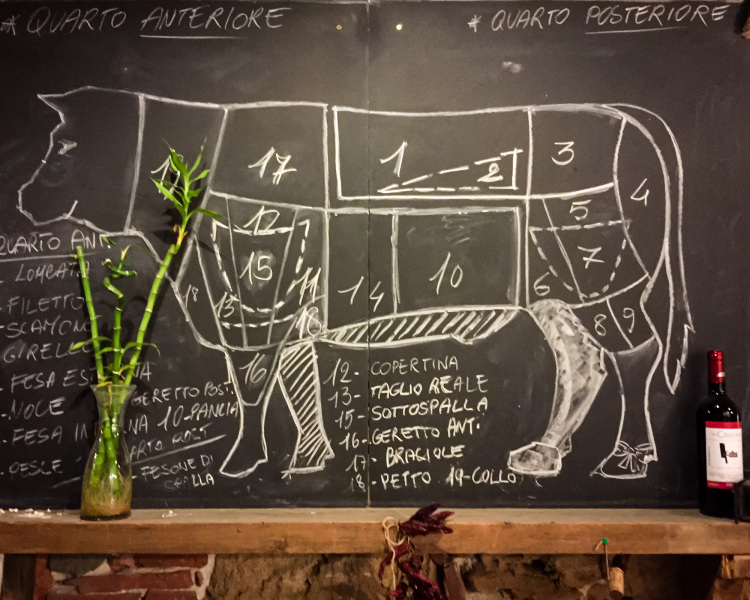 * QUARTO ANTERIORE
* QUARTO POSTERIORE
17
1
2
3
4
5
12
15
7
13
11
14
10
6
18
8
9
16
QUARTO ANT
LOMBATA
- FILETTO
- SCAMONE
GIRELLO
- FESA ES
- NOCE
- FESA IN
PESCE
GERETTO POST.
10-PANCIA
- FESONE DI
12- COPERTINA
13- TAGLIO REALE
15- SOTTOSPALLA
16- GERETTO ANT.
17- BRACIOLE
18- PETTO 19-COLLO